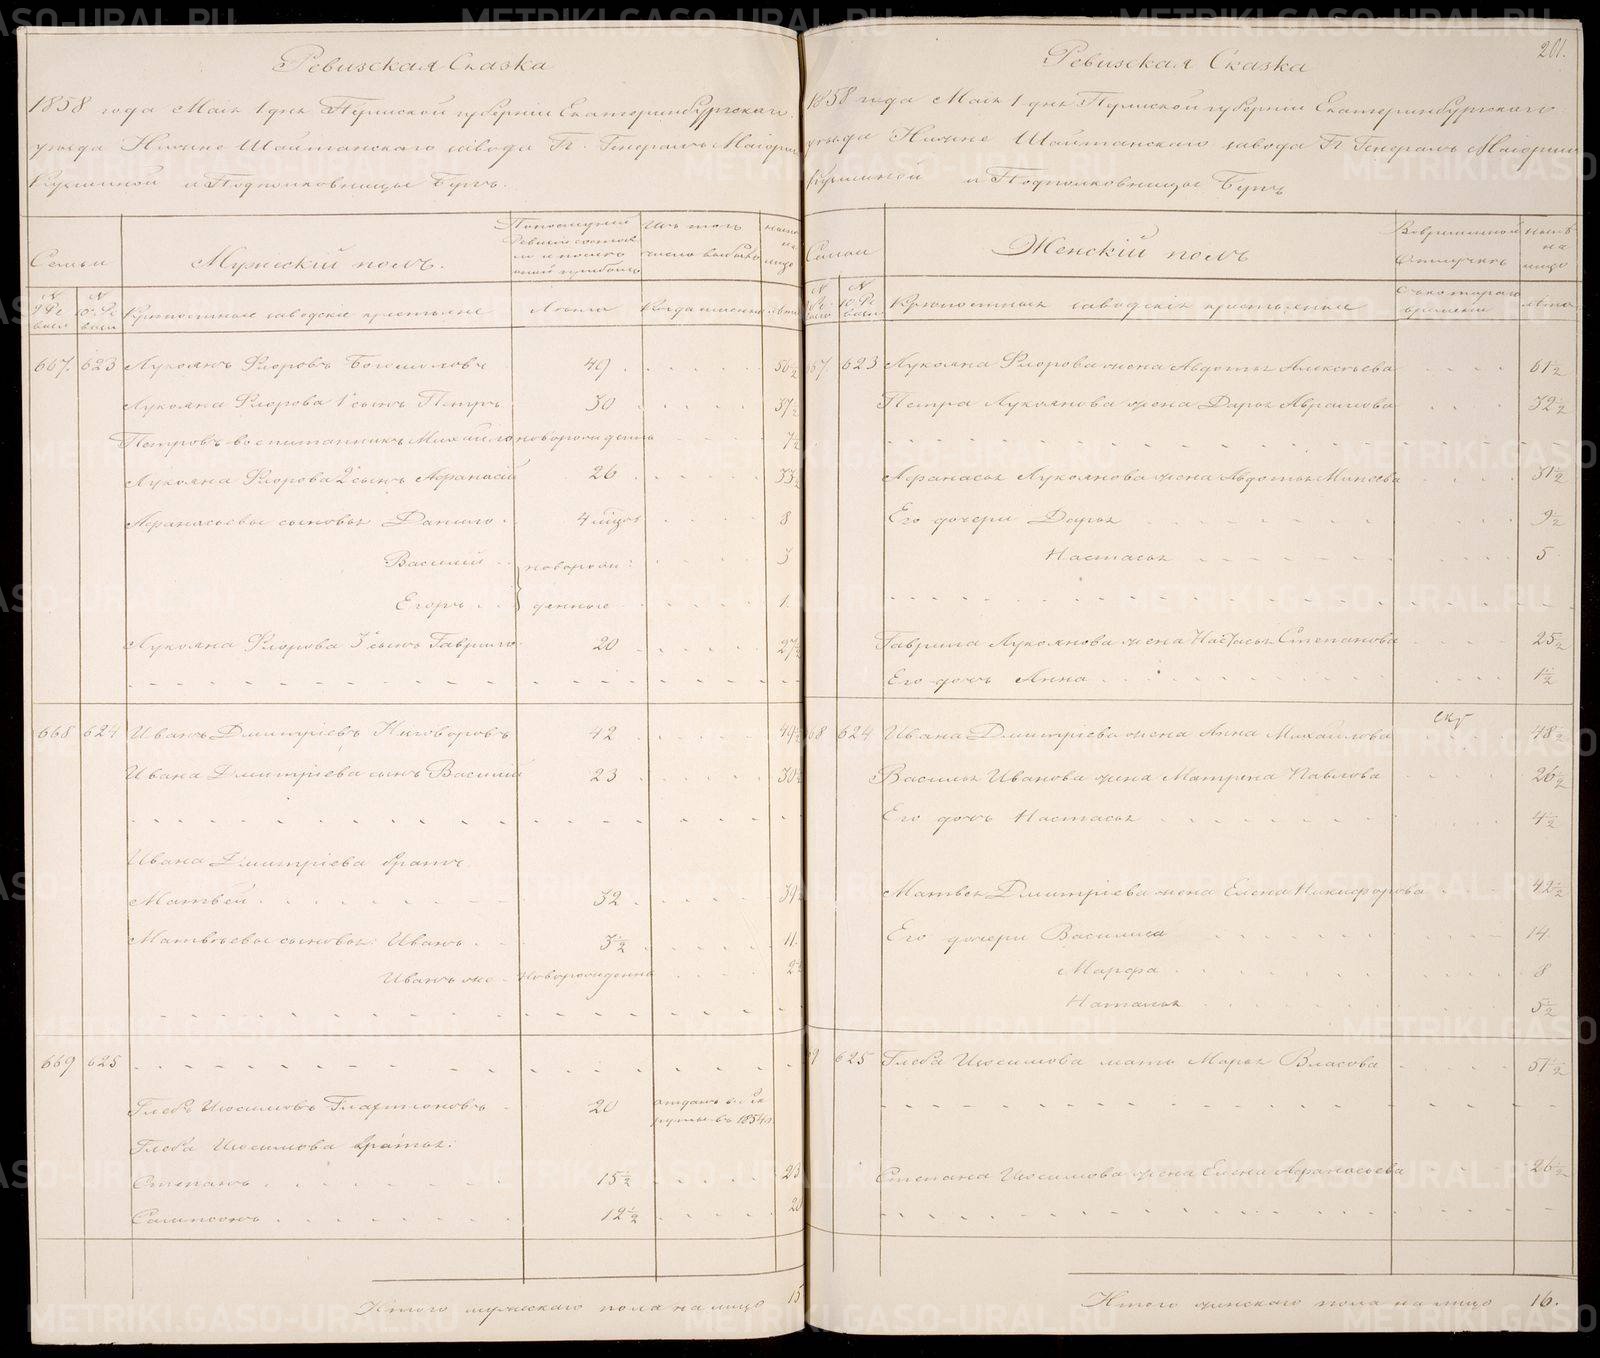 Ревизская Сказка
1858 года Маія 1 дня Пермской губерніи Екатеринбургскаго
уезда Нижне Шайтанскаго завода Гг. Генералъ Маіорши
Кузминой и Подполковницы Бергъ.
Семьи
Мужескій полъ.
Крепостные заводскіе крестьяне
Лета
Когда именно
лета
667. 623 Лукоянъ Флоровъ 49 56½
Лукояна Флорова 1й сынъ Петръ 30 37½
Петровъ воспитанникъ Михайло новорожденъ 7½
Лукояна Флорова 2й сынъ Афанасій 26 33½
Афанасьевы сыновья Данило 8
Василій новорож: 3
Егоръ денные 1.
Лукояна Флорова 3й сынъ Гаврило 20 27½
668 624 Иванъ Дмитріевъ 42 49½
Ивана Дмитріева сынъ Василій 23 30½
Ивана Дмитріева братъ
Матвей 32 39½
Матвеевы сыновья: Иванъ 3½ 11.
Иванъ же новорожденъ 2½
669 625
Глебъ Изосимовъ 20 отданъ въ рекруты въ 1854 г.
Глеба Изосимова братья:
Степанъ 15½ 23
Сампсонъ 12½ 20
Итого мужескаго пола на лицо 15
201.
Ревизская Сказка
1858 года Маія 1 дня Пермской губерніи Екатеринбургскаго
уезда Нижне Шайтанскаго завода Гг Генералъ Маіорши
Кузминой и Подполковницы Бергъ
Семьи
Женскій полъ
Во временной отлучке
ныне на лицо
Крепостныя заводскія крестьянки
съ котораго времени
лета
667. 623 Лукояна Флорова жена Авдотья Алексеева 61½
Петра Лукоянова жена Дарья Абрамова 32½
Афанасья Лукоянова жена Авдотья Минеева 31½
Его дочери Дарья 9½
Настасья 5
Гаврила Лукоянова жена Настасья Степанова 25½
Его дочь Анна 1½
668 624 Ивана Дмитріева жена Анна Михайлова 48½
Василья Иванова жена Матрена Павлова 26½
Его дочь Настасья 4½
Матвея Дмитріева жена Елена Никифорова 42½
Его дочери Василиса 14
Марфа 8
Наталья 5½
669 625 Глеба Изосимова мать Марья Власова 51½
Степана Изосимова жена Елена Афанасьева 26½
Итого женскаго пола на лицо 16.
METRIKI.GASO-URAL.RU